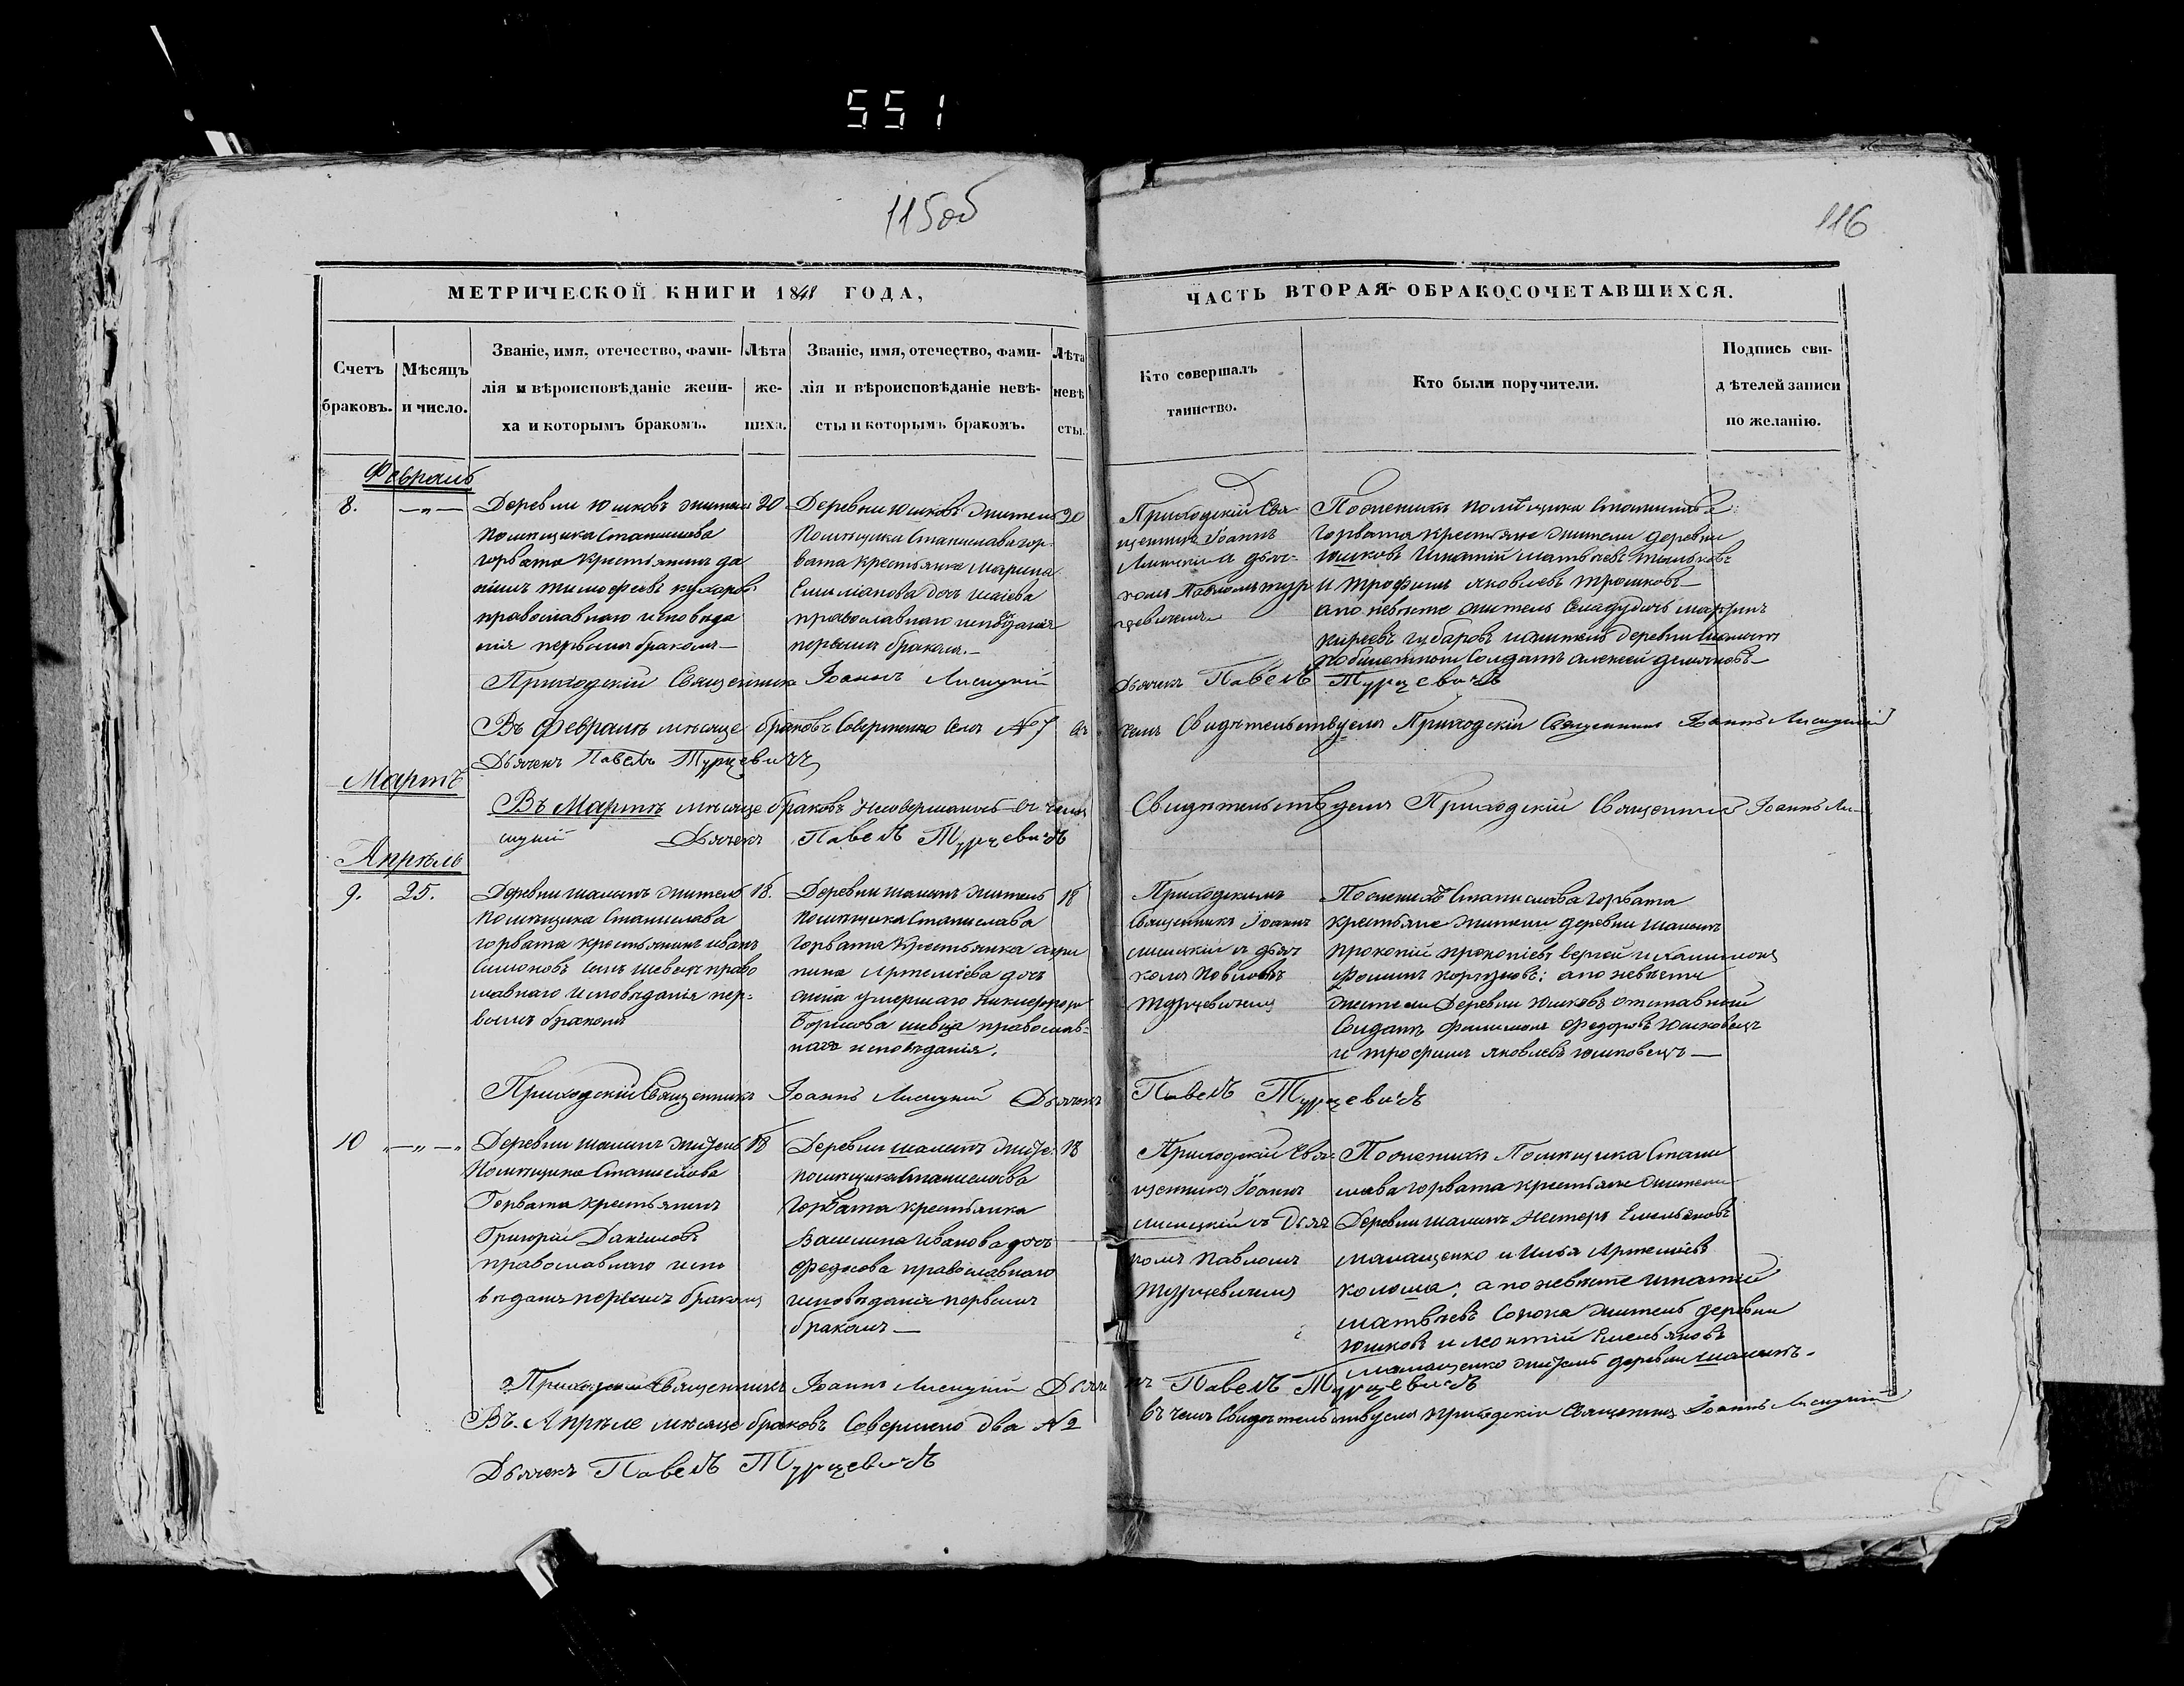 551
115об
116
МЕТРИЧЕСКОЙ КНИГИ 1848 ГОДА,
ЧАСТЬ ВТОРАЯ ОБРАКОСОЧЕТАВШИХСЯ.
Счетъ
браковъ.
Мѣсяцъ
и число.
Званіе, имя, отечество, фами-
лія и вѣроисповѣданіе жени-
ха и которымъ бракомъ.
Лѣта
же-
ниха.
Званіе, имя, отечество, фами-
лія и вѣроисповѣданіе невѣ-
сты и которымъ бракомъ.
Лѣта
невѣ
сты.
Кто совершалъ
таинство.
Кто были поручители.
Подпись сви-
дѣтелей записи
по желанію.
Февраль
8.
Деревни Юшковъ житель
помѣщика Станислава
горвата крестьянинъ да
нилъ тимофеевъ
православнаго исповѣда
нія первымъ бракомъ
20
Деревни Юшковъ житель
помѣщика Станислава гор
вата крестьянка Марина
Емилианова дочь
православнаго исповѣданія
первымъ бракомъ
20
Приходскій Свя
щенникъ Іоаннъ
Лисицкій а дьяч
комъ Павломъ тур
цевичемъ
По женихѣ помѣщика Станислава
горвата крестьяне жители деревни
Юшковъ Игнатій матвѣевъ
и трофимъ яковлевъ трошковъ
а по невѣсте житель
деревни
Солдатъ алексей
Приходскій Священникъ Іоаннъ Лисицкій
Дьячекъ Павелъ Турцевичъ
Въ Февралѣ мѣсяце браковъ Совершено Семь № 7 въ
чемъ Свидѣтельствуемъ Приходскій Священникъ Іоаннъ Лисицкій
Дьячекъ Павелъ Турцевичъ
Мартъ
Въ Мартѣ мѣсяце браковъ Несовершалось въ чемъ
Свидѣтельствуемъ Приходскій Священникъ Іоаннъ Ли-
сицкій Дьячекъ Павелъ Турцевичъ
Апрѣль
9. 25.
Деревни шалыпъ житель
помѣщика Станислава
горвата крестьянинъ иванъ
Симоновъ сынъ шевецъ право
славнаго исповѣданія пер-
вымъ бракомъ
18.
Деревни шалыпъ житель
помѣщика Станислава
горвата крестьянка агри
пина Артеміева дочь
умершаго никифорова
Борисова шевца православ-
наго исповѣданія.
18
Приходскимъ
Священникъ Іоаннъ
лисицкій а дьяч
комъ Павломъ
турцевичемъ
По женихѣ Станислава горвата
крестьяне жители деревни шалыпъ
прокопій прокопіевъ
а по невѣсте
жители Деревни Юшковъ отставной
Солдатъ Филимонъ Федоровъ Юшковецъ
и трофимъ яковлевъ юшковецъ
Приходскій Священникъ Іоаннъ Лисицкій Дьячекъ
Павелъ Турцевичъ
10
Деревни шалыпъ житель
помѣщика Станислава
Горвата крестьянинъ
Григорій Даниловъ
православнаго испо
вѣданія первымъ бракомъ
18
Деревни шалыпъ жите:
помѣщика Станислава
горвата крестьянка
Василина Иванова дочь
Федосова православнаго
исповѣданія первымъ
бракомъ
18
Приходскій Свя
щенникъ Іоаннъ
лисицкій а Дьяч
комъ Павломъ
турцевичемъ
По женихѣ Помѣщика Стани
слава горвата крестьяне жители
Деревни шалыпъ Нестеръ Емельяновъ
малащенко и Илья Артеміевъ
колоша; а по невѣсте игнатій
матвѣевъ Сорока житель деревни
юшковъ и леонтій Емельяновъ
малащенко житель деревни шалыпъ.
Приходскій Священникъ Іоаннъ Лисицкій Дьячекъ Павелъ Турцевичъ
Въ Апрѣле мѣсяце браковъ Совершено два № 2
въ чемъ Свидѣтельствуемъ приходскій Священникъ Іоаннъ Лисицкій
Дьячекъ Павелъ Турцевичъ